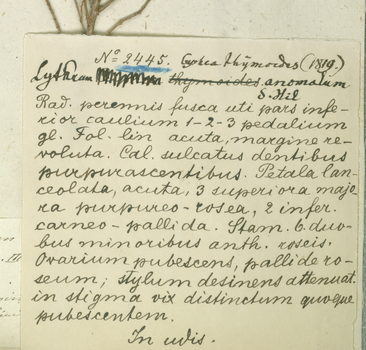 No 2445. Cuphea thymoides (1819.)
Lythrum thymoides anomalum
S. Hil
Rad. perennis fusca uti pars infe-
rior caulium 1-2-3 pedalium
gl. Fol. lin acuta, margine re-
voluta. Cal. sulcatus dentibus
purpurascentibus. Petala lan-
ceolata, acuta, 3 superiora majo-
ra purpureo-rosea, 2 infer.
carneo-pallida. Stam. 6. duo-
bus minoribus anth. roseis.
Ovarium pubescens, pallide ro-
seum; stylum desinens attenuat.
in stigma vix distinctum quoque
pubescentem.
In udis.